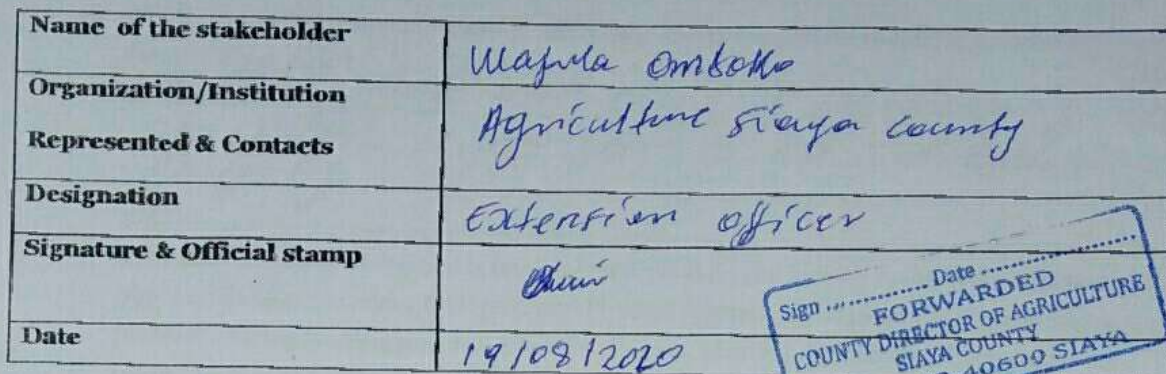 Name of the stakeholder
Wafula Ombokko
Organization/Institution
Represented & Contacts
Agriculture Siaya County
Designation
Extension officer
Signature & Official stamp
Sign ............. Date ..............
FORWARDED
COUNTY DIRECTOR OF AGRICULTURE
SIAYA COUNTY
40600 SIAYA
Date
19/08/2020